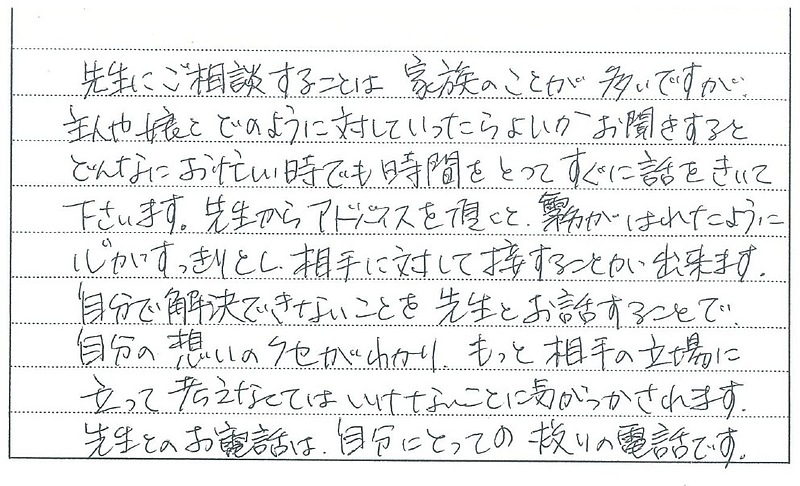 先生にご相談することは 家族のことが 多いですが、
主人や娘と どのように対していったらよいか お聞きすると
どんなに お忙しい時でも 時間を とって すぐに 話を きいて
下さいます。先生から アドバイスを 頂くと、霧が はれたように
心がすっきりとし、相手に対して 接することが 出来ます。
自分で解決できないことを 先生と お話することで、
自分の 想いのクセがわかり、もっと 相手の立場に
立って 考えなくては いけないことに気がつかされます。
先生とのお電話は、自分にとっての 救いの電話です。